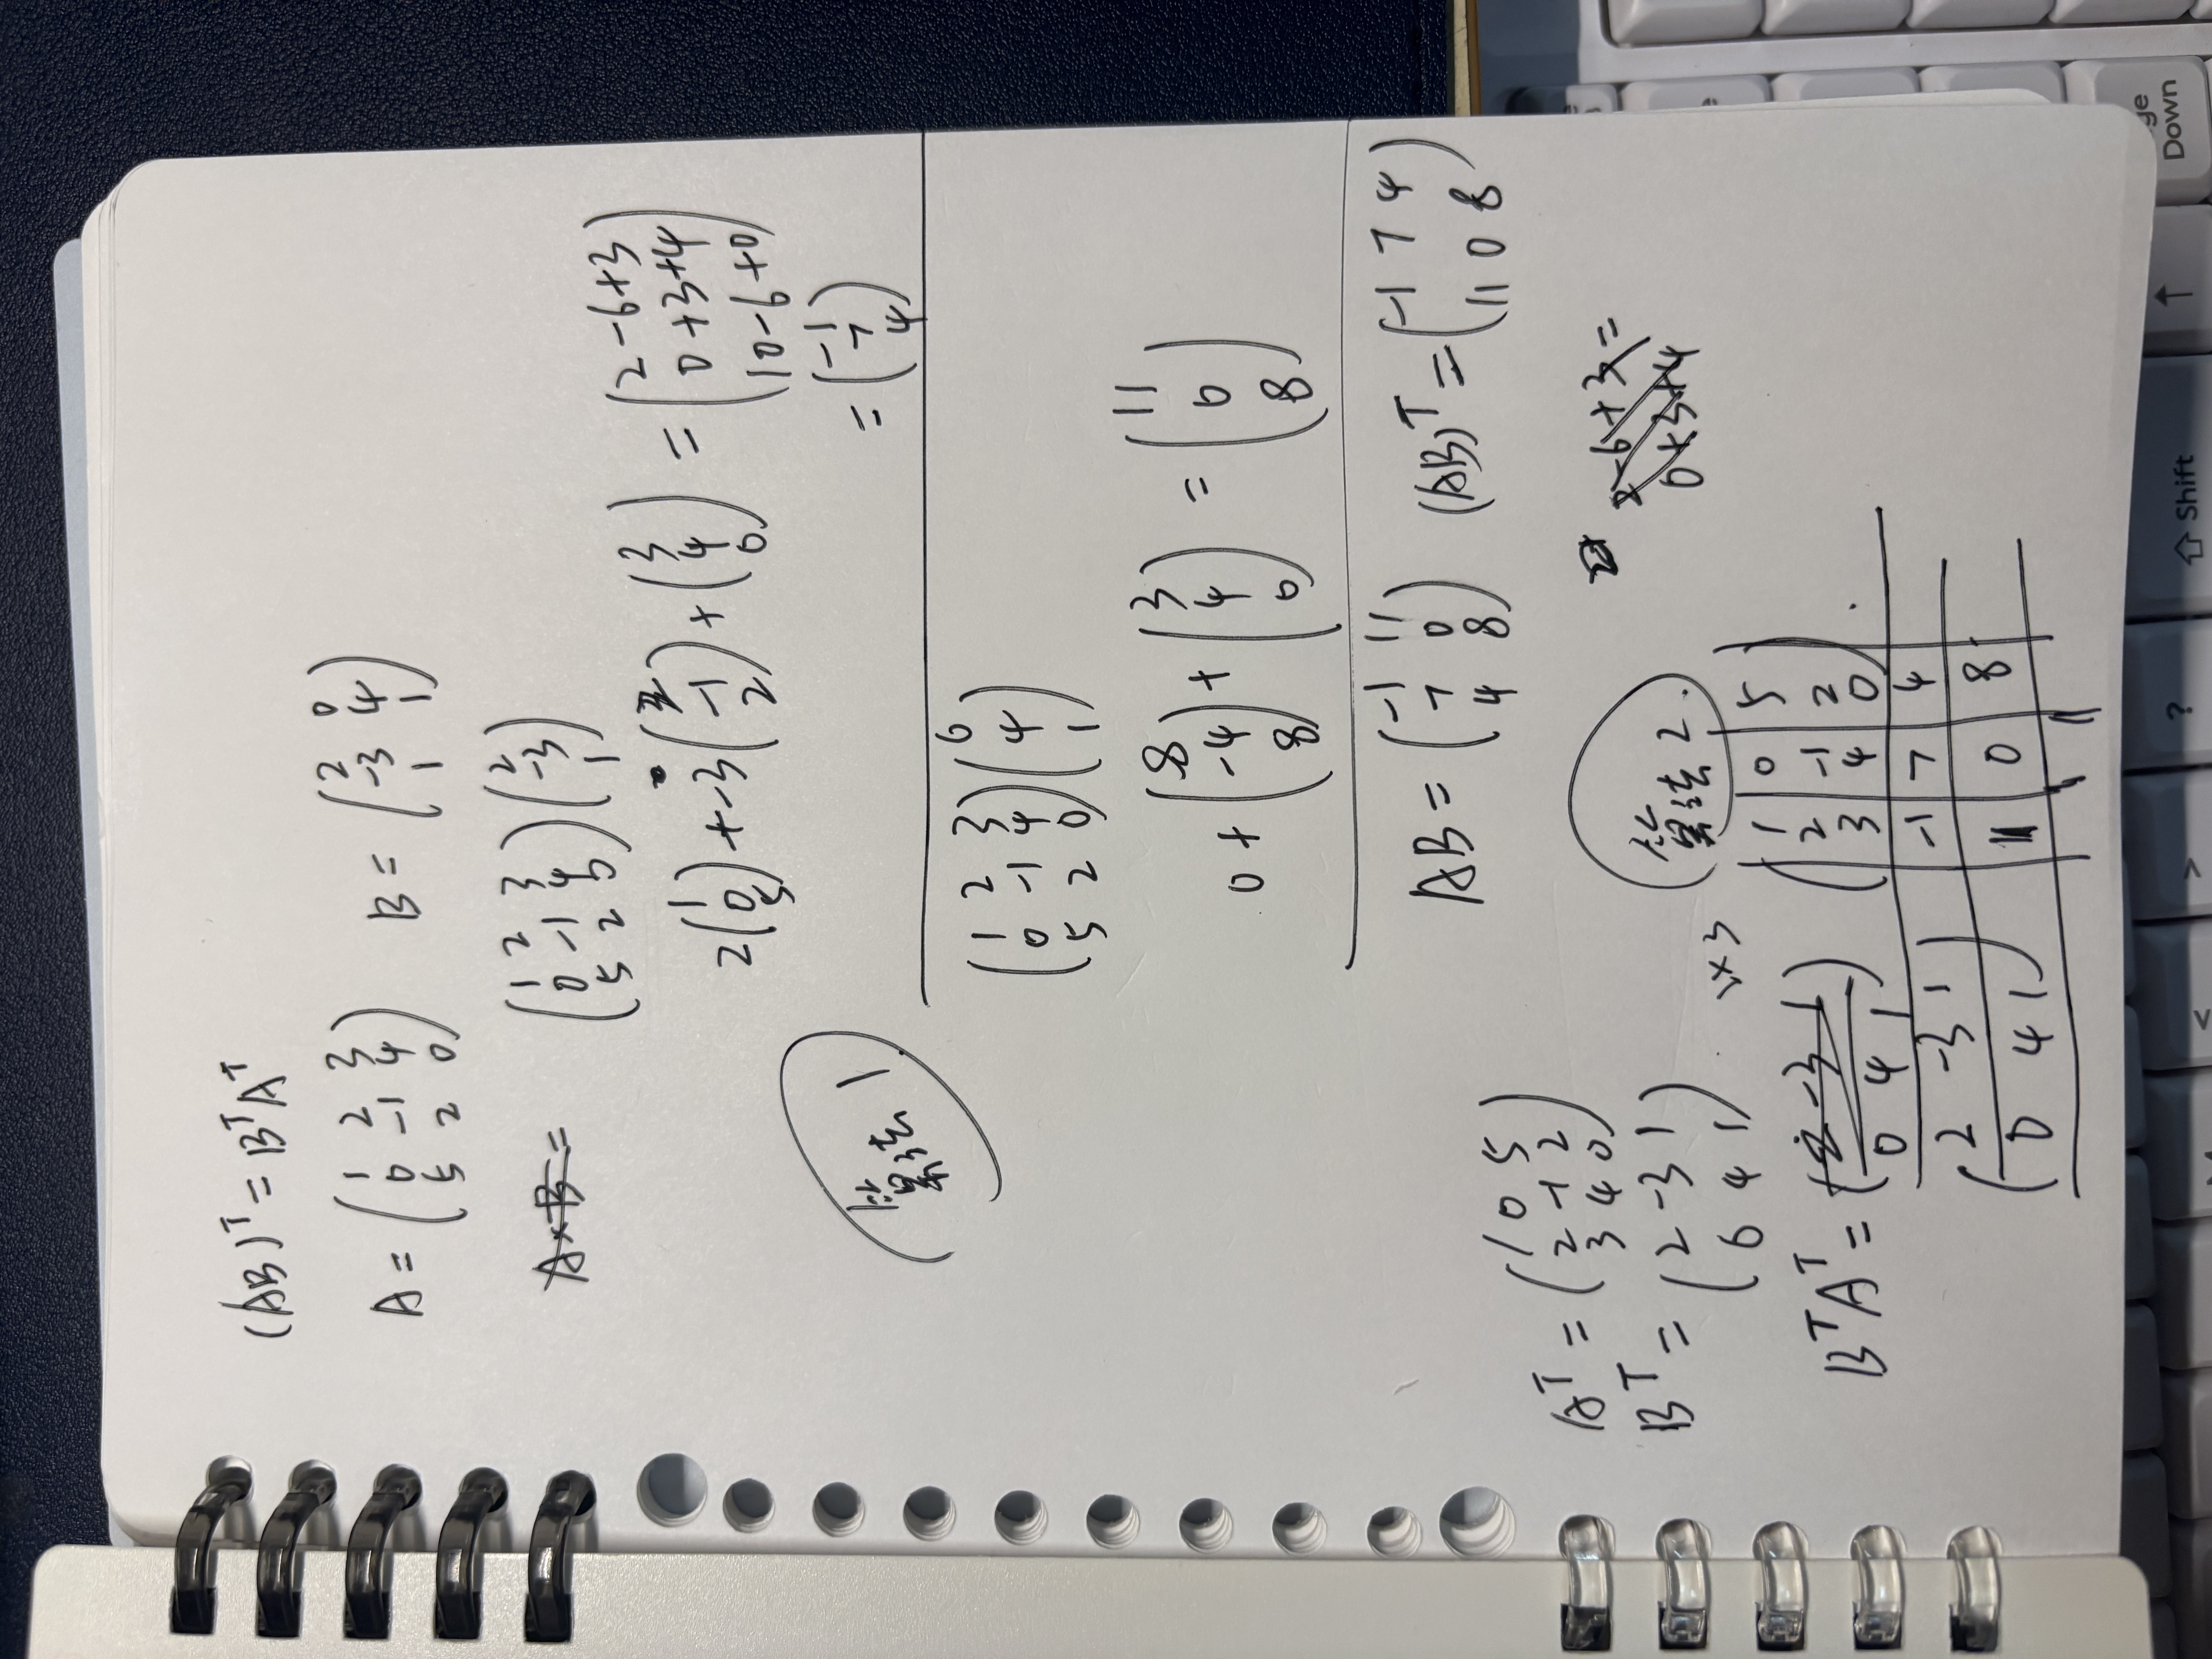 (AB)ᵀ = BᵀAᵀ
A = ( 1 2 3
0 -1 4
5 2 0 )
B = ( 2 0
-3 4
1 1 )
A×B =
( 1 2 3
0 -1 4
5 2 0 ) ( 2
-3
1 )
2 ( 1
0
5 ) + -3 ( 2
-1
2 ) + ( 3
4
0 ) = ( 2-6+3
0+3+4
10-6+0 )
= ( -1
7
4 )
算法 1
( 1 2 3
0 -1 4
5 2 0 ) ( 0
4
1 )
0 + ( 8
-4
8 ) + ( 3
4
0 ) = ( 11
0
8 )
AB = ( -1 11
7 0
4 8 )
(AB)ᵀ = ( -1 7 4
11 0 8 )
Aᵀ = ( 1 0 5
2 -1 2
3 4 0 )
Bᵀ = ( 2 -3 1
0 4 1 )
2×3
算法 2.
2-6+3=
0+3+4
BᵀAᵀ = ( 2 -3 1
0 4 1 )
( 1 0 5
2 -1 2
3 4 0 ).
( 2 -3 1
0 4 1 )
-1 7 4
11 0 8
?
< >
⇧ Shift
↑
Down